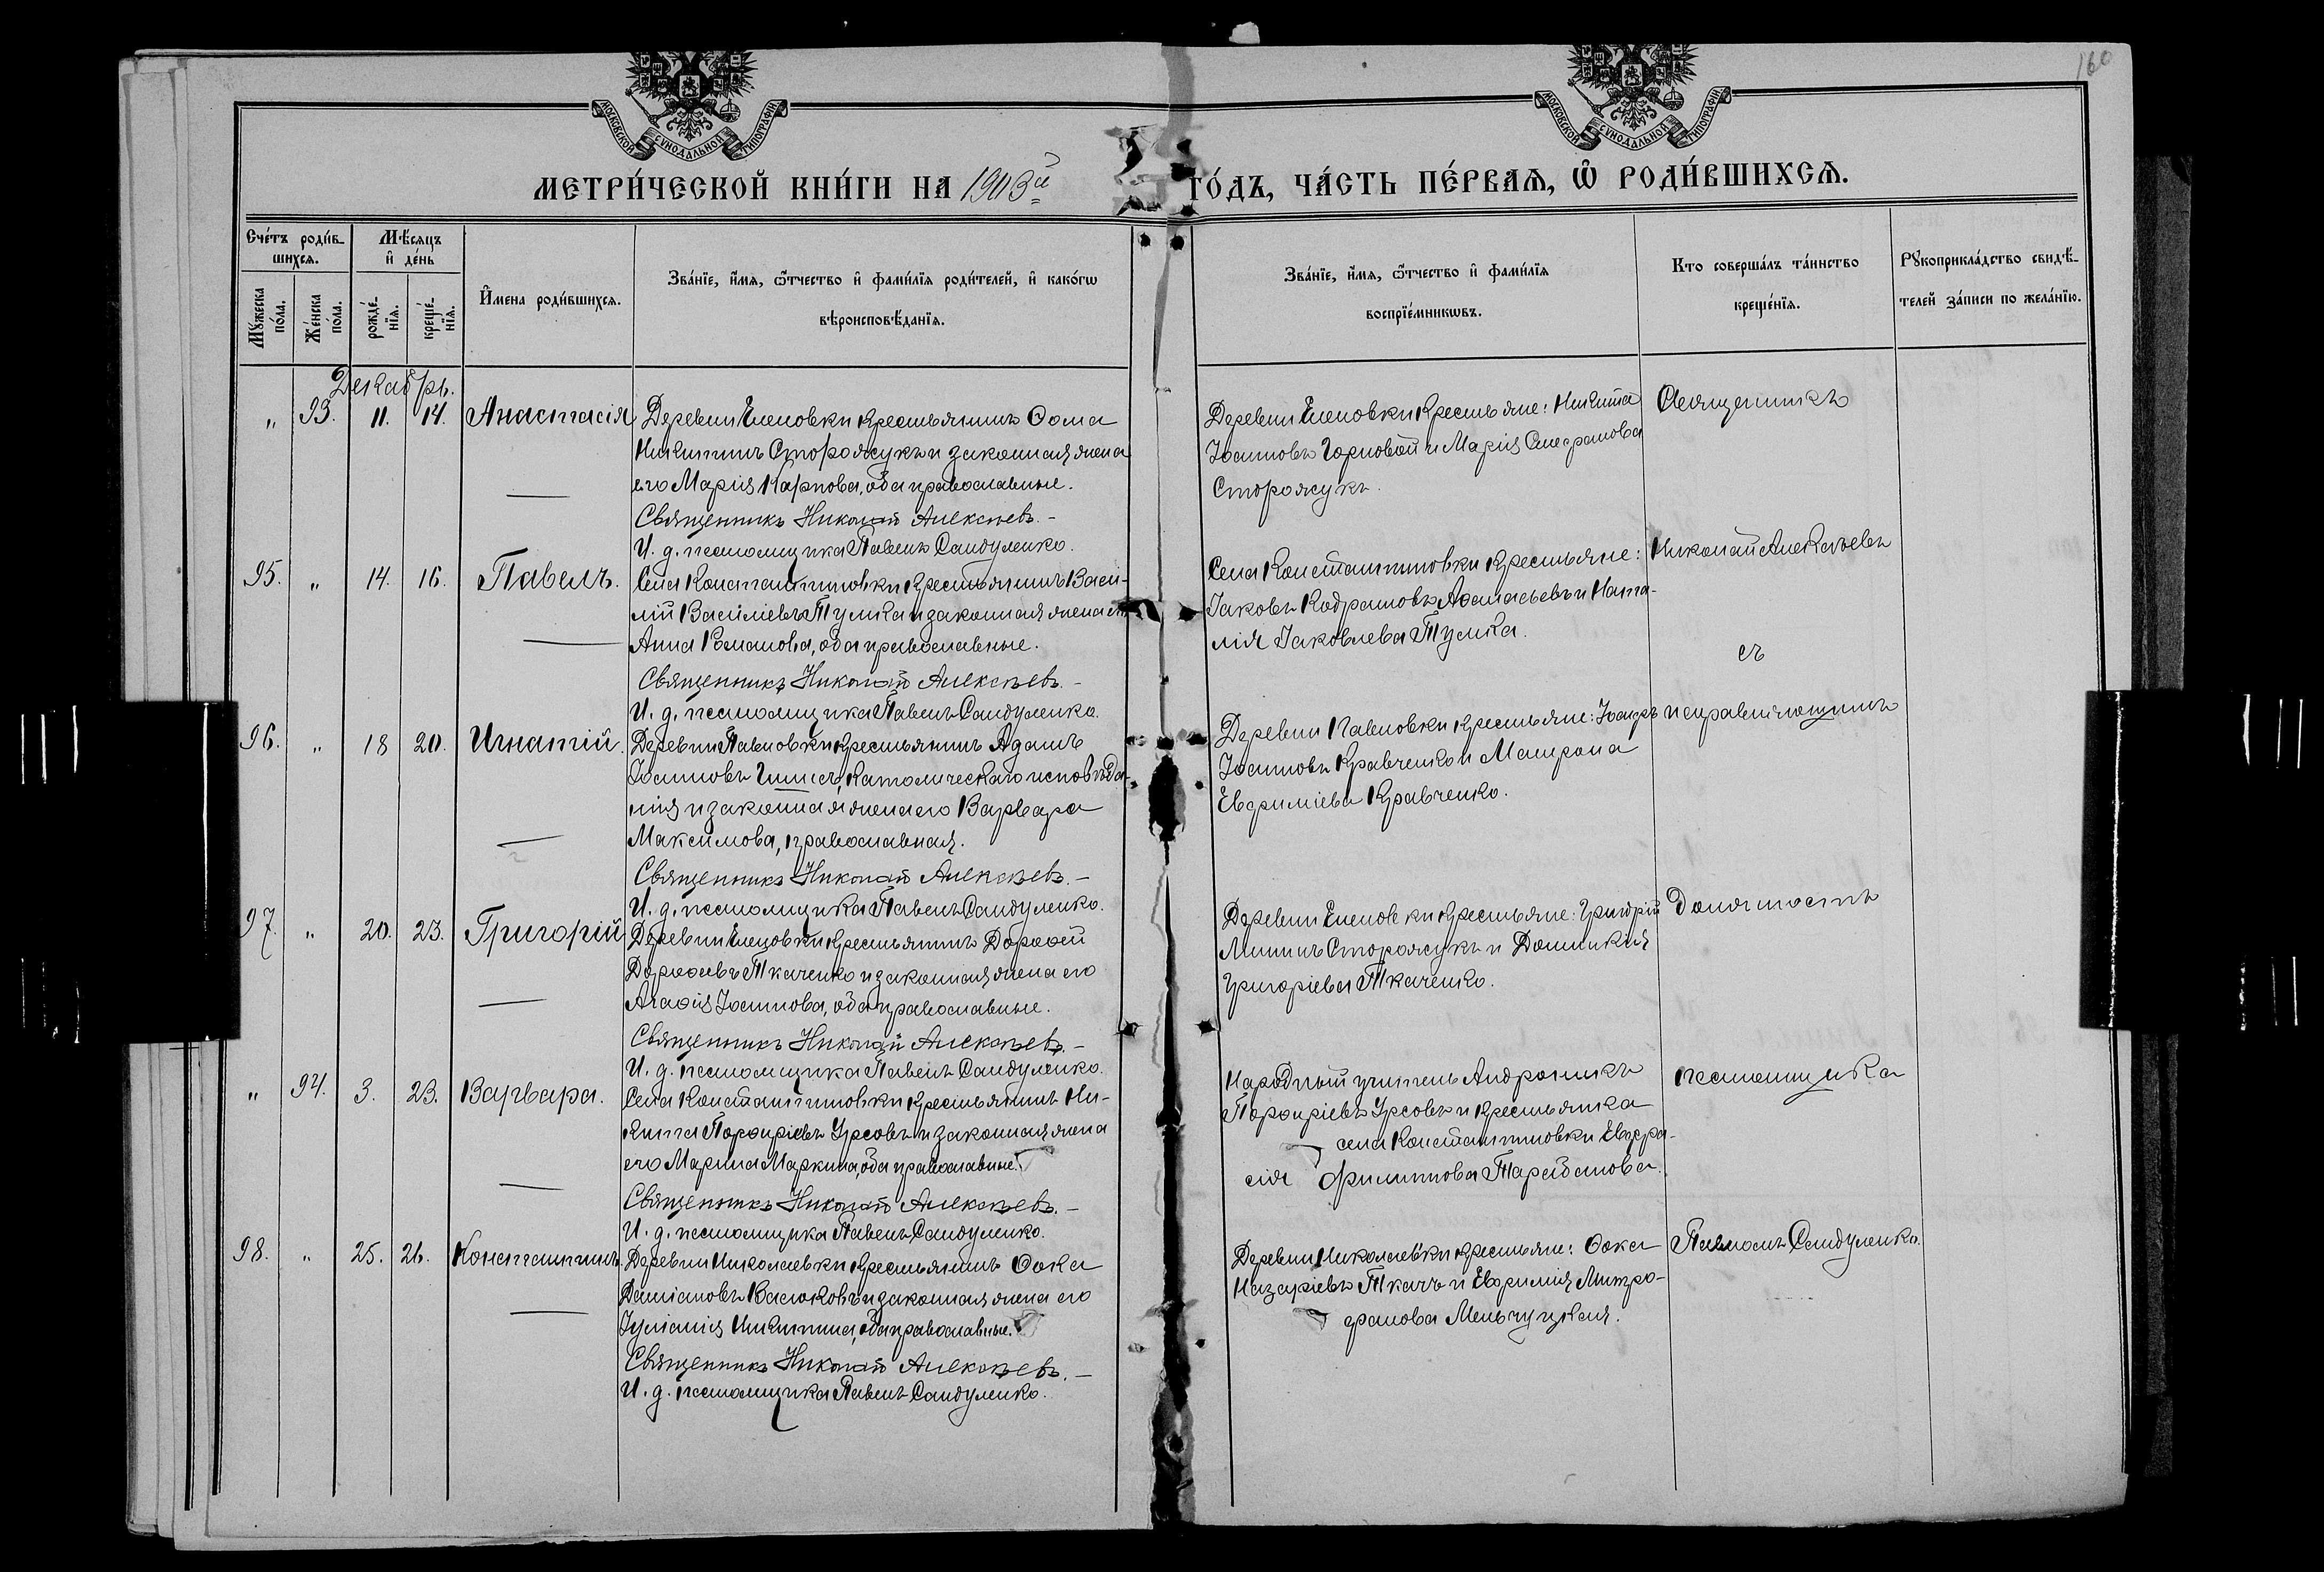 160
МОСКОВСКОЙ СѴНОДАЛЬНОЙ ТИПОГРАФІИ
МОСКОВСКОЙ СѴНОДАЛЬНОЙ ТИПОГРАФІИ
МЕТРИ́ЧЕСКОЙ КНИ́ГИ НА 1903й ГО́ДЪ, ЧА́СТЬ ПЕ́РВАЯ, Ѽ РОДИ́ВШИХСЯ.
Сче́тъ роди́вшихся.
Мꙋ́жеска по́ла.
Же́нска по́ла.
Мѣ́сяцъ и҆ де́нь
рожде́нїя.
креще́нїя.
И҆мена роди́вшихся.
Зва́нїе, и҆́мя, ѻ҆́тчество и҆ фами́лїя роди́телей, и҆ како́гѡ
вѣроисповѣ́данїя.
Зва́нїе, и҆́мя, ѻ҆́тчество и҆ фами́лїя
воспрїе́мникѡвъ.
Кто соверша́лъ та́инство
креще́нїя.
Рꙋкоприкла́дство свидѣ́-
телей за́писи по жела́нїю.
Декабрь.
" 93. 11. 14. Анастасія
Деревни Еленовки крестьянинъ Ѳома
Никитинъ Сторожукъ и законная жена
его Марія Карпова, оба православные.
Священникъ Николай Алексѣевъ. –
И. д. псаломщика Павелъ Сандуленко.
Деревни Еленовки крестьяне: Никита
Іоанновъ Горновой и Марія Стефанова
Сторожукъ.
Священникъ
95. " 14. 16. Павелъ.
Села Константиновки крестьянинъ Васи-
лій Василіевъ Тулка и законная жена его
Анна Романова, оба православные.
Священникъ Николай Алексѣевъ. –
И. д. псаломщика Павелъ Сандуленко.
Села Константиновки крестьяне:
Іаковъ Кодратовъ Аѳанасьевъ и Ната-
лія Іаковлева Тулка.
Николай Алексѣевъ
съ
96. " 18 20. Игнатій.
Деревни Павловки крестьянинъ Адамъ
Іоанновъ католическаго исповѣда-
нія и законная жена его Варвара
Максимова, православная.
Священникъ Николай Алексѣевъ. –
И. д. псаломщика Павелъ Сандуленко.
Деревни Павловки крестьяне:
Іоанновъ Кравченко и Матрона
Евфиміева Кравченко.
исправляющимъ
97. " 20. 23. Григорій
Деревни Еленовки крестьянинъ Дороѳей
Дороѳеевъ Ткаченко и законная жена его
Агаѳія Іоаннова, оба православные.
Священникъ Николай Алексѣевъ. –
И. д. псаломщика Павелъ Сандуленко.
Деревни Еленовки крестьяне: Григорій
Сторожукъ и Домникія
Григоріева Ткаченко.
Должность
" 94. 3. 23. Варвара.
Села Константиновки крестьянинъ Ни-
кита Порфиріевъ Урсовъ и законная жена
его Марина Маркина, оба православные.
Священникъ Николай Алексѣевъ. –
И. д. псаломщика Павелъ Сандуленко.
Народный учитель Андроникъ
Порфиріевъ Урсовъ и крестьянка
села Константиновки Евфра-
сія Филиппова Тарабанова.
псаломщика
98. " 25. 26. Константинъ.
Деревни Николаевки крестьянинъ Ѳока
Даміановъ Васюковъ и законная жена его
Іуліанія Никитина, оба православные.
Священникъ Николай Алексѣевъ. –
И. д. псаломщика Павелъ Сандуленко.
Деревни Николаевки крестьяне: Ѳока
Назаріевъ Ткачъ и Евфимія Митро-
фанова
Павломъ Сандуленко.